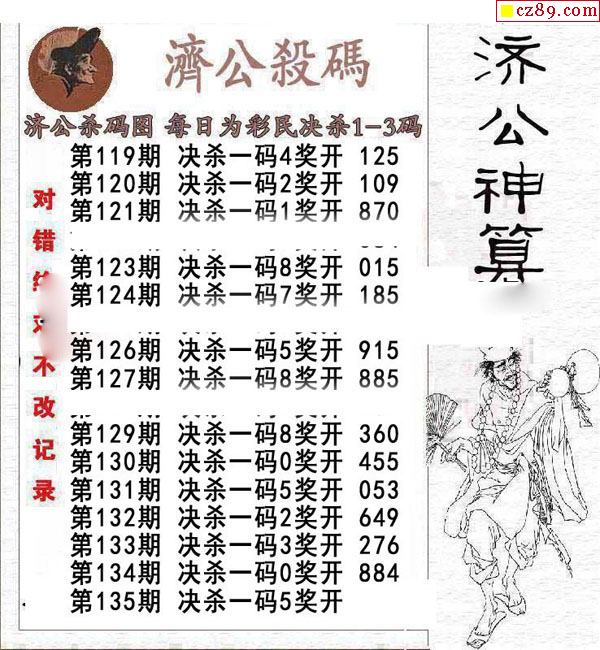 cz89.com
濟公殺碼
济公杀码图 每日为彩民决杀1-3码
第119期 决杀一码4奖开 125
第120期 决杀一码2奖开 109
第121期 决杀一码1奖开 870
第123期 决杀一码8奖开 015
第124期 决杀一码7奖开 185
第126期 决杀一码5奖开 915
第127期 决杀一码8奖开 885
第129期 决杀一码8奖开 360
第130期 决杀一码0奖开 455
第131期 决杀一码5奖开 053
第132期 决杀一码2奖开 649
第133期 决杀一码3奖开 276
第134期 决杀一码0奖开 884
第135期 决杀一码5奖开
对错
不改记录
济公神算